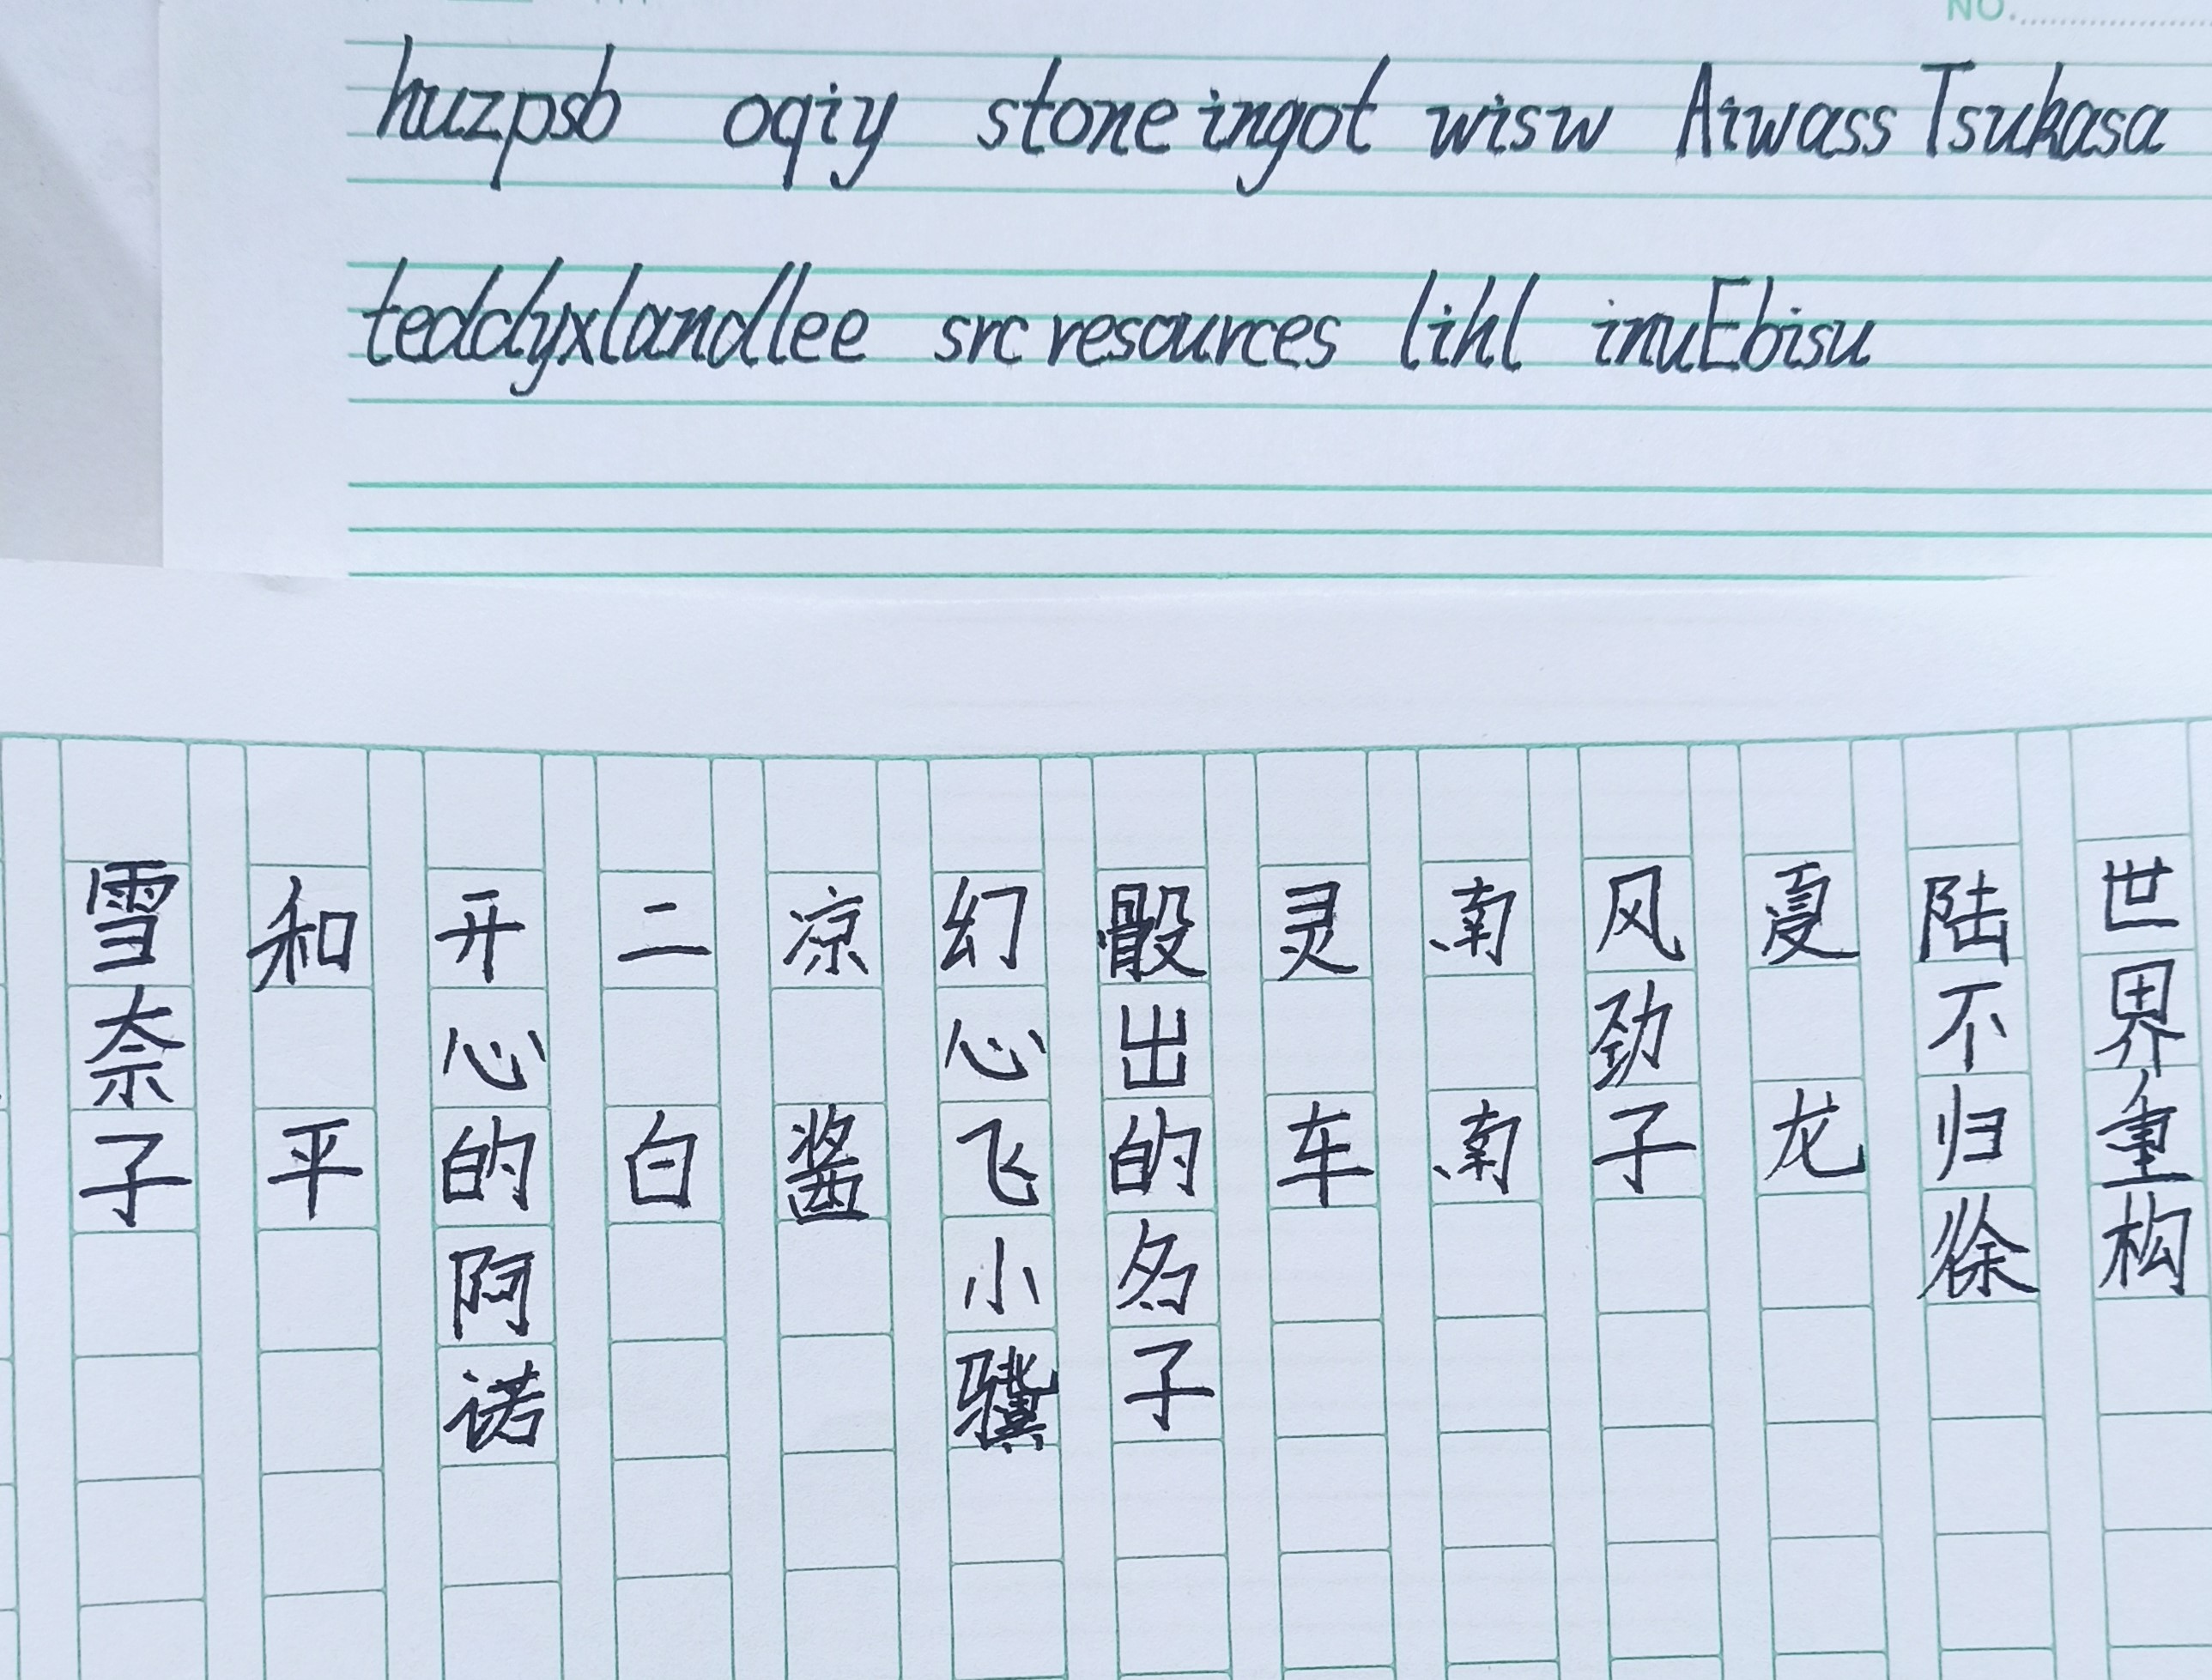 NO.
huzpsb oqiy stone ingot wisw Aiwass Tsukasa
teddyxlandlee src resources lihl inuEbisu
世界重构
陆不归徐
夏龙
风劲子
南南
灵车
骰出的名子
幻心飞小骥
凉酱
二白
开心的阿诺
和平
雪奈子